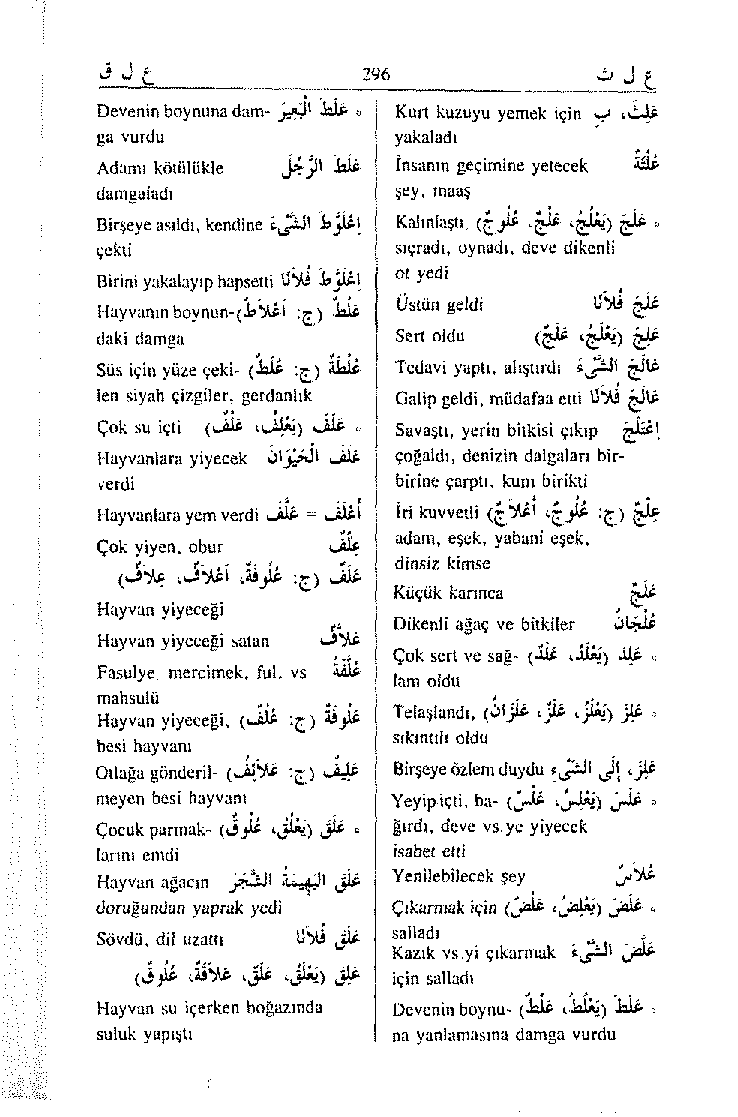 ع ل ث
296
ع ل ق
عَلِثَ، بِ Kurt kuzuyu yemek için
yakaladı
عُلْثَةٌ İnsanın geçimine yetecek
şey, maaş
° عَلَجَ (يَعْلُجُ، عَلْجٌ، عُلُوجٌ) Kalınlaştı,
sıçradı, oynadı, deve dikenli
ot yedi
عَلَجَ فُلاَنًا Üstün geldi
عَلِجَ (يَعْلَجُ، عَلَجٌ) Sert oldu
عَالَجَ الشَّيْءَ Tedavi yaptı, alıştırdı
عَالَجَ فُلاَنًا Galip geldi, müdafaa etti
اِعْتَلَجَ Savaştı, yerin bitkisi çıkıp
çoğaldı, denizin dalgaları bir-
birine çarptı, kum birikti
عِلْجٌ (ج: عُلُوجٌ، أَعْلاَجٌ) İri kuvvetli
adam, eşek, yabani eşek,
dinsiz kimse
عَلَجٌ Küçük karınca
عُلْجَانٌ Dikenli ağaç ve bitkiler
° عَلِدَ (يَعْلَدُ، عَلَدٌ) Çok sert ve sağ-
lam oldu
° عَلِزَ (يَعْلَزُ، عَلَزٌ، عَلَزَانٌ) Telaşlandı,
sıkıntılı oldu
عَلِزَ، إِلَى الشَّيْءِ Birşeye özlem duydu
° عَلَسَ (يَعْلِسُ، عَلْسٌ) Yeyip içti, ba-
ğırdı, deve vs.ye yiyecek
isabet etti
عَلاَسٌ Yenilebilecek şey
° عَلَضَ (يَعْلِضُ، عَلْضٌ) Çıkarmak için
salladı
عَلَضَ الشَّيْءَ Kazık vs.yi çıkarmak
için salladı
° عَلَطَ (يَعْلُطُ، عَلْطٌ) Devenin boynu-
na yanlamasına damga vurdu
° عَلَّطَ الْبَعِيرَ Devenin boynuna dam-
ga vurdu
عَلَطَ الرَّجُلَ Adamı kötülükle
damgaladı
اِعْلَوَّطَ الشَّيْءَ Birşeye asıldı, kendine
çekti
اِعْلَوَّطَ فُلاَنًا Birini yakalayıp hapsetti
عَلْطٌ (ج: أَعْلاَطٌ) Hayvanın boynun-
daki damga
عُلْطَةٌ (ج: عُلَطٌ) Süs için yüze çeki-
len siyah çizgiler, gerdanlık
° عَلَفَ (يَعْلِفُ، عَلْفٌ) Çok su içti
عَلَفَ الْحَيَوَانَ Hayvanlara yiyecek
verdi
أَعْلَفَ = عَلَّفَ Hayvanlara yem verdi
عِلْفٌ Çok yiyen, obur
عَلَفٌ (ج: عُلُوفَةٌ، أَعْلاَفٌ، عِلاَفٌ)
Hayvan yiyeceği
عَلاَّفٌ Hayvan yiyeceği satan
عُلَّفَةٌ Fasulye, mercimek, ful, vs
mahsulü
عَلُوفَةٌ (ج: عُلُفٌ) Hayvan yiyeceği,
besi hayvanı
عَلِيفٌ (ج: عَلاَئِفُ) Otlağa gönderil-
meyen besi hayvanı
° عَلَقَ (يَعْلُقُ، عُلُوقٌ) Çocuk parmak-
larını emdi
عَلَقَ الْبَهِيمَةُ الشَّجَرَ Hayvan ağacın
doruğundan yaprak yedi
عَلَقَ فُلاَنًا Sövdü, dil uzattı
عَلِقَ (يَعْلَقُ، عَلَقٌ، عَلاَقَةٌ، عُلُوقٌ)
Hayvan su içerken boğazında
suluk yapıştı